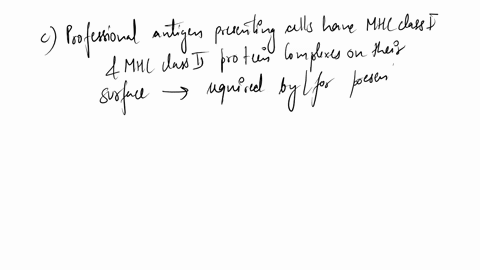 c) Professional antigen presenting cells have MHC class I
& MHC class II protein complexes on their
surface → required by/for presen